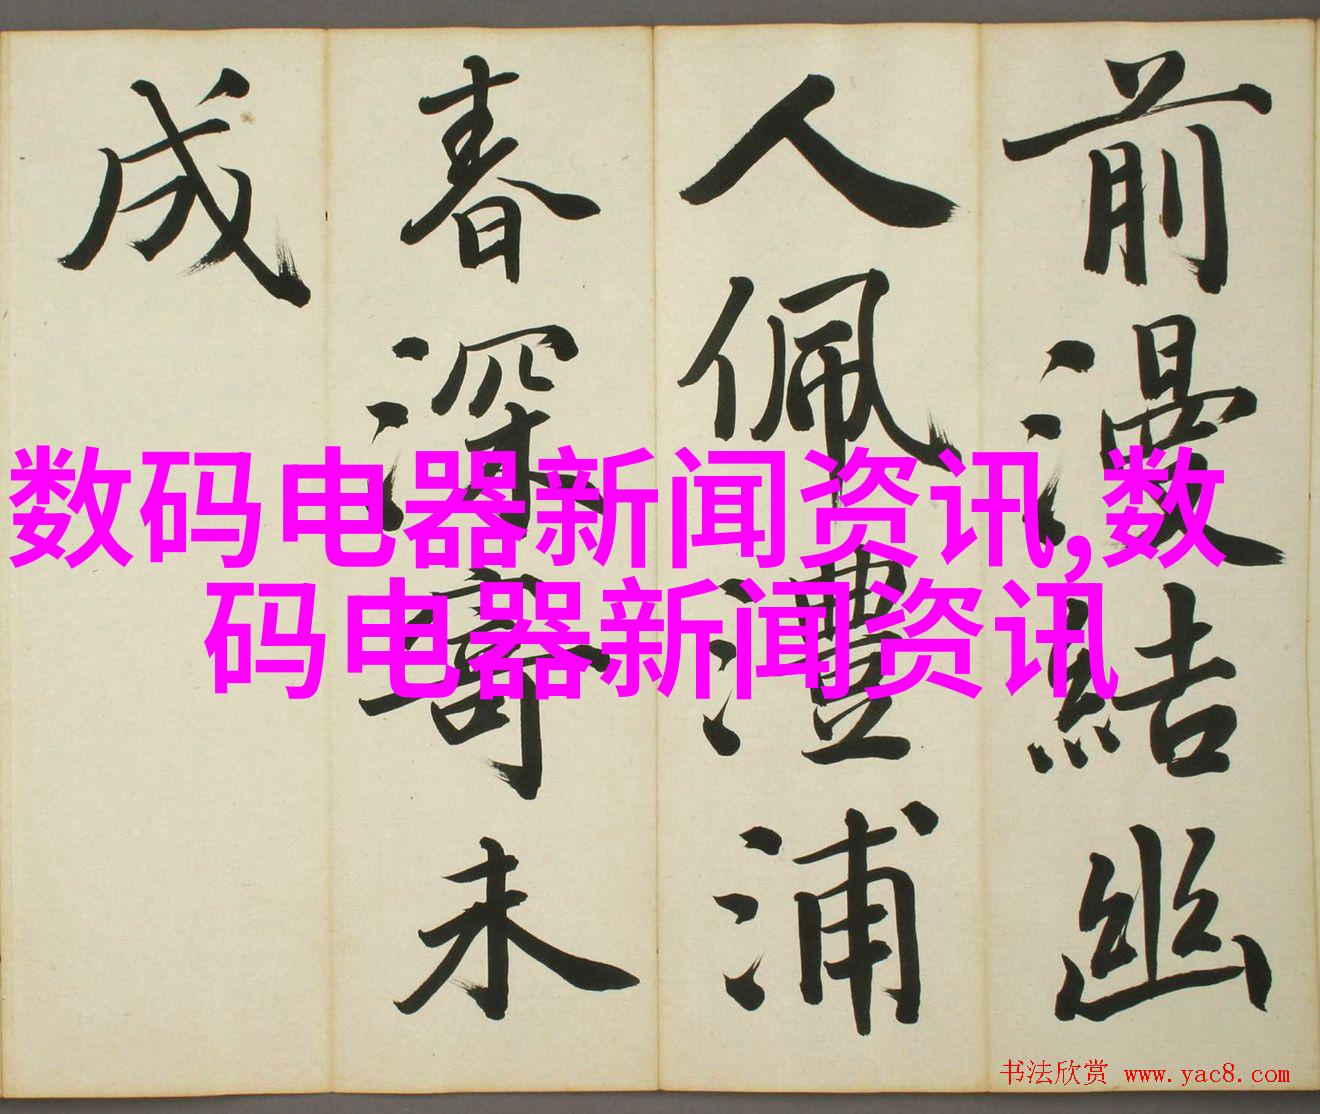 前漫結幽
人佩澧浦
春深寄未
成
数码电器新闻资讯,数
码电器新闻资讯
书法欣赏 www.yac8.com